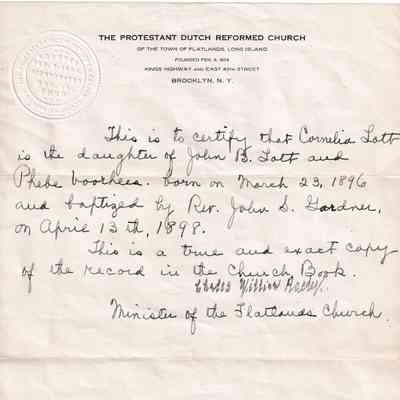 THE PROTESTANT DUTCH REFORMED CHURCH
OF THE TOWN OF FLATLANDS, LONG ISLAND
FOUNDED FEB. 9, 1654
KINGS HIGHWAY AND EAST 40TH STREET
BROOKLYN, N. Y.
This is to certify that Cornelia Lott
is the daughter of John B. Lott and
Phebe Voorhees. born on March 23, 1896
and baptized by Rev. John S. Gardner,
on April 13th, 1898.
This is a true and exact copy
of the record in the Church Book.
Charles William
Minister of the Flatlands Church.